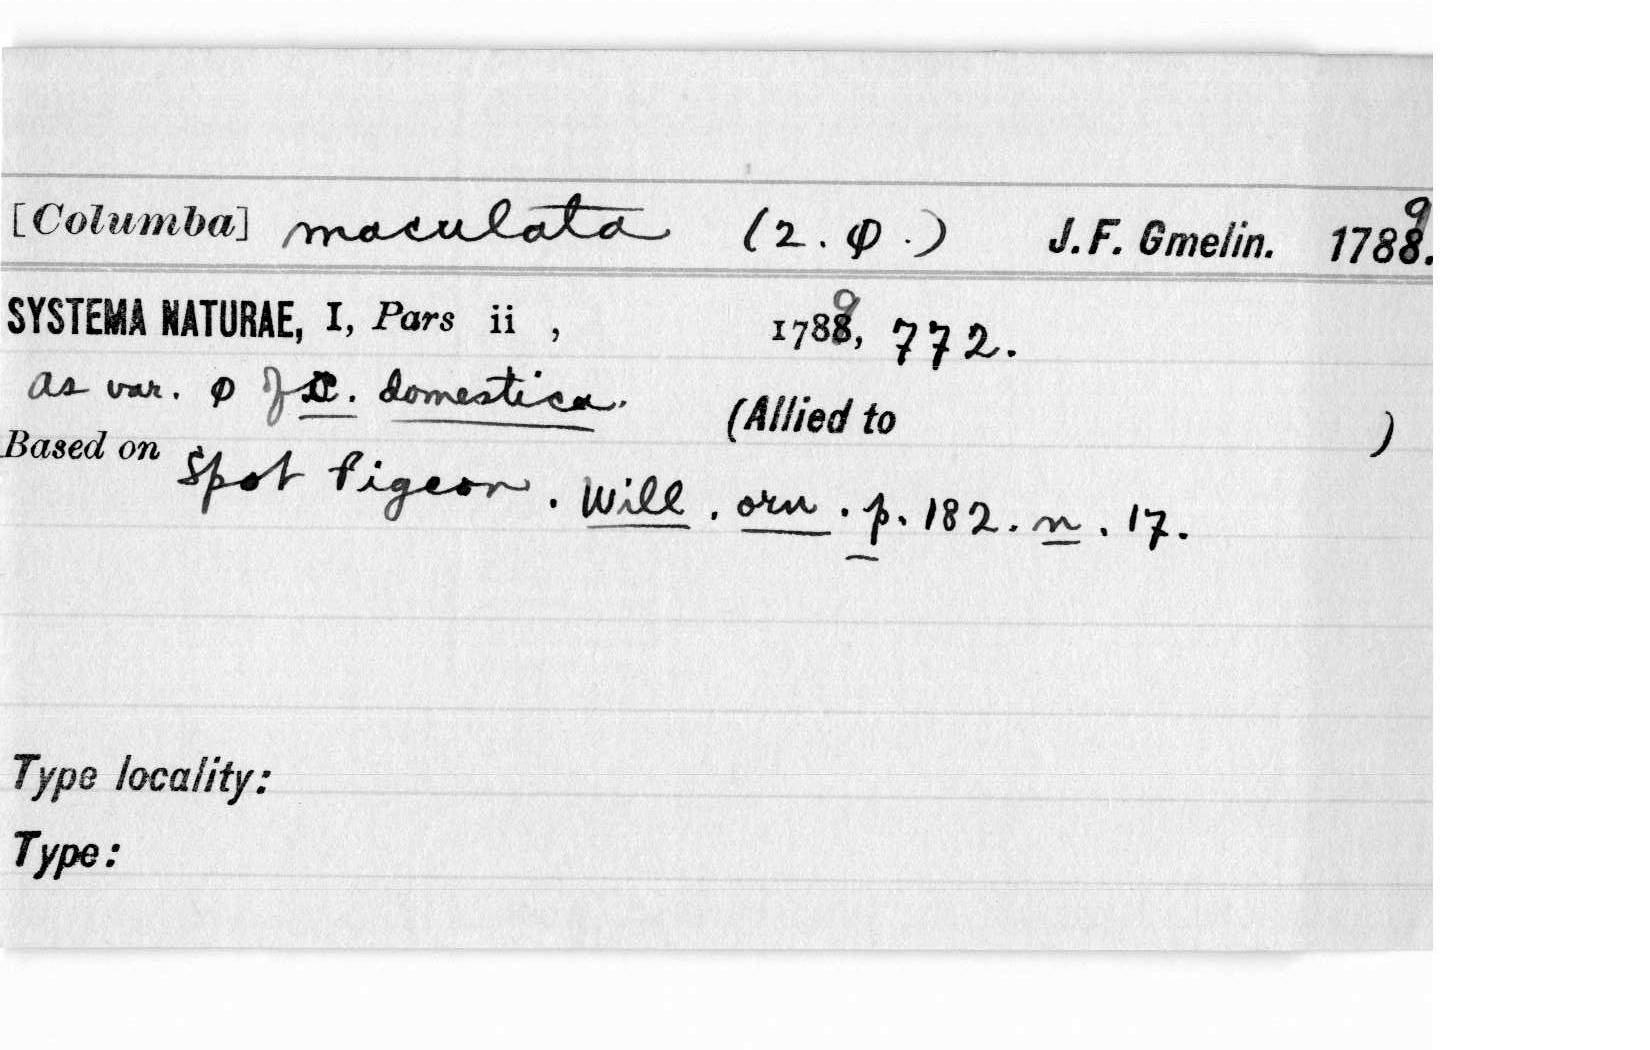 [Columba] maculata (2. φ.) J. F. Gmelin. 1789.
SYSTEMA NATURAE, I, Pars ii , 1789, 772.
as var. φ of C. domestica. (Allied to )
Based on Spot Pigeon. Will. orn. p. 182. n. 17.
Type locality:
Type: